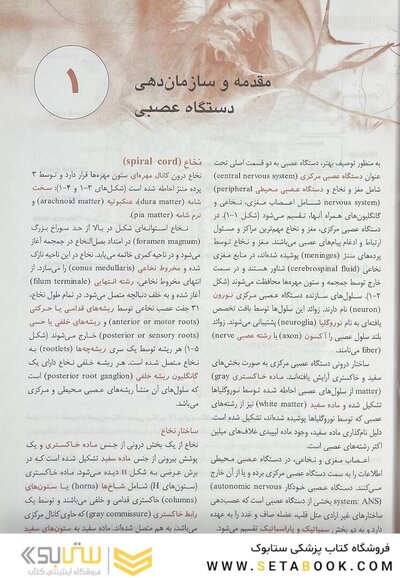 ۱
مقدمه و سازمان‌دهی
دستگاه عصبی
به منظور توصیف بهتر، دستگاه عصبی به دو قسمت اصلی تحت
عنوان دستگاه عصبی مرکزی (central nervous system)
شامل مغز و نخاع و دستگاه عصبی محیطی (peripheral
nervous system) شامل اعصاب مغزی، نخاعی و
گانگلیون‌های همراه آنها، تقسیم می‌شود (شکل ۱-۱). در
دستگاه عصبی مرکزی، مغز و نخاع مهم‌ترین مراکز و مسئول
ارتباط و ادغام پیام‌های عصبی می‌باشند. مغز و نخاع توسط
پرده‌های مننژ (meninges) پوشیده شده‌اند، در مایع مغزی
نخاعی (cerebrospinal fluid) شناور هستند و در سمت
خارج توسط جمجمه و ستون مهره‌ها محافظت می‌شوند (شکل
۲-۱). سلول‌های سازنده دستگاه عصبی مرکزی نورون
(neuron) نام دارند. زوائد این سلول‌ها توسط بافت تخصص
یافته‌ای به نام نوروگلیا (neuroglia) پشتیبانی می‌شوند. زوائد
بلند سلول عصبی را آکسون (axon) یا رشته عصبی (nerve
fiber) می‌نامند.
ساختار درونی دستگاه عصبی مرکزی به صورت بخش‌های
سفید و خاکستری آرایش یافته‌اند. ماده خاکستری (gray
matter) از سلول‌های عصبی احاطه شده توسط نوروگلیاها
تشکیل شده و ماده سفید (white matter) نیز از رشته‌های
عصبی که توسط نوروگلیاها پوشیده شده‌اند، تشکیل شده است.
دلیل نام‌گذاری ماده سفید، وجود ماده لیپیدی غلاف‌های میلین
اکثر رشته‌های عصبی است.
اعصاب مغزی و نخاعی، در دستگاه عصبی محیطی
اطلاعات را به سمت دستگاه عصبی مرکزی برده و یا از آن خارج
می‌کنند. دستگاه عصبی خودکار (autonomic nervous
system: ANS) بخشی از دستگاه عصبی است که عصب‌دهی
ساختارهای غیر ارادی مثل قلب، عضله صاف و غدد را به عهده
دارد و به دو بخش سمپاتیک و پاراسمپاتیک تقسیم می‌شود.
نخاع (spiral cord)
نخاع درون کانال مهره‌ای ستون مهره‌ها قرار دارد و توسط ۳
پرده مننژ احاطه شده است (شکل‌های ۳-۱ و ۴-۱): سخت
شامه (dura matter)، عنکبوتیه (arachnoid matter) و
نرم شامه (pia matter).
نخاع استوانه‌ای شکل در بالا از حد سوراخ بزرگ
(foramen magnum) در امتداد بصل‌النخاع در جمجمه آغاز
می‌شود و در ناحیه کمری خاتمه می‌یابد. نخاع در این ناحیه نازک
شده و مخروط نخاعی (conus medullaris) را می‌سازد. از
انتهای مخروط نخاعی، رشته انتهایی (filum terminale)
آغاز شده و به خلف دنبالچه متصل می‌شود. در تمام طول نخاع،
۳۱ جفت عصب نخاعی توسط ریشه‌های قدامی یا حرکتی
(anterior or motor roots) و ریشه‌های خلفی یا حسی
(posterior or sensory roots) خارج می‌شوند (شکل
۵-۱) هر ریشه توسط یک سری ریشه‌چه‌ها (rootlets) به
نخاع متصل شده است. هر ریشه خلفی نخاع دارای یک
گانگلیون ریشه خلفی (posterior root ganglion) است
که سلول‌های آن منشأ ریشه‌های عصبی محیطی و مرکزی
می‌باشد.
ساختار نخاع
نخاع از یک بخش درونی از جنس ماده خاکستری و یک
پوشش بیرونی از جنس ماده سفید تشکیل شده است که در
برش عرضی به شکل H دیده می‌شود. ماده خاکستری
(ستون‌های H) شامل شاخ‌ها (horns) یا ستون‌های
(columns) خاکستری قدامی و خلفی می‌باشند و توسط یک
رابط خاکستری (gray commissure) که حاوی کانال مرکزی
می‌باشد، به هم متصل شده‌اند. ماده سفید به ستون‌های سفید
فروشگاه کتاب پزشکی ستابوک
WWW.SETABOOK.COM
ستابوک
فروشگاه اینترنتی کتاب